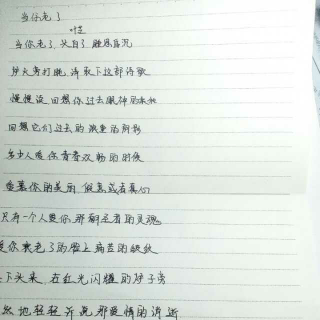 当你老了
叶芝
当你老了 头白了 睡思昏沉
炉火旁打盹 请取下这部诗歌
慢慢读 回想你过去眼神的柔和
回想它们过去的浓重的阴影
多少人爱你青春欢畅的时候
爱慕你的美丽 假意或者真心
只有一个人爱你那朝圣者的灵魂
爱你衰老了的脸上痛苦的皱纹
下头来 在红光闪耀的炉子旁
然地轻轻诉说那爱情的消逝